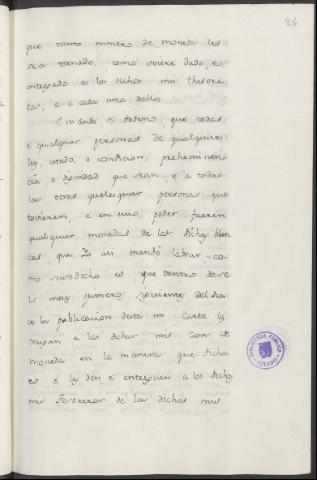 24
que tanto numero de moneda les
sea tornado, como oviere dado, e
entregado a los dichos mis thesore
ros, e a cada uno dellos
E mando, e ordeno, que todas,
e qualquier personas de qualquier
ley, estado, o condicion, preheminen
cia, o dignidad que sean, e a todas
las otras qualesquier personas que
tovieren, e en cuio poder fueren
qualquier monedas de las dichas blan
cas que Yo asi mandé labrar, co-
mo susodicho es, que dentro de
meses primeros siguientes del dia
de la publicacion desta mi Carta
traigan a las dichas mis Casas de
moneda en la manera que dicha
es, e las den e entreguen a los dichos
mis Tesoreros de las dichas mis
BIBLIOTECA PUBLICA
TOLEDO